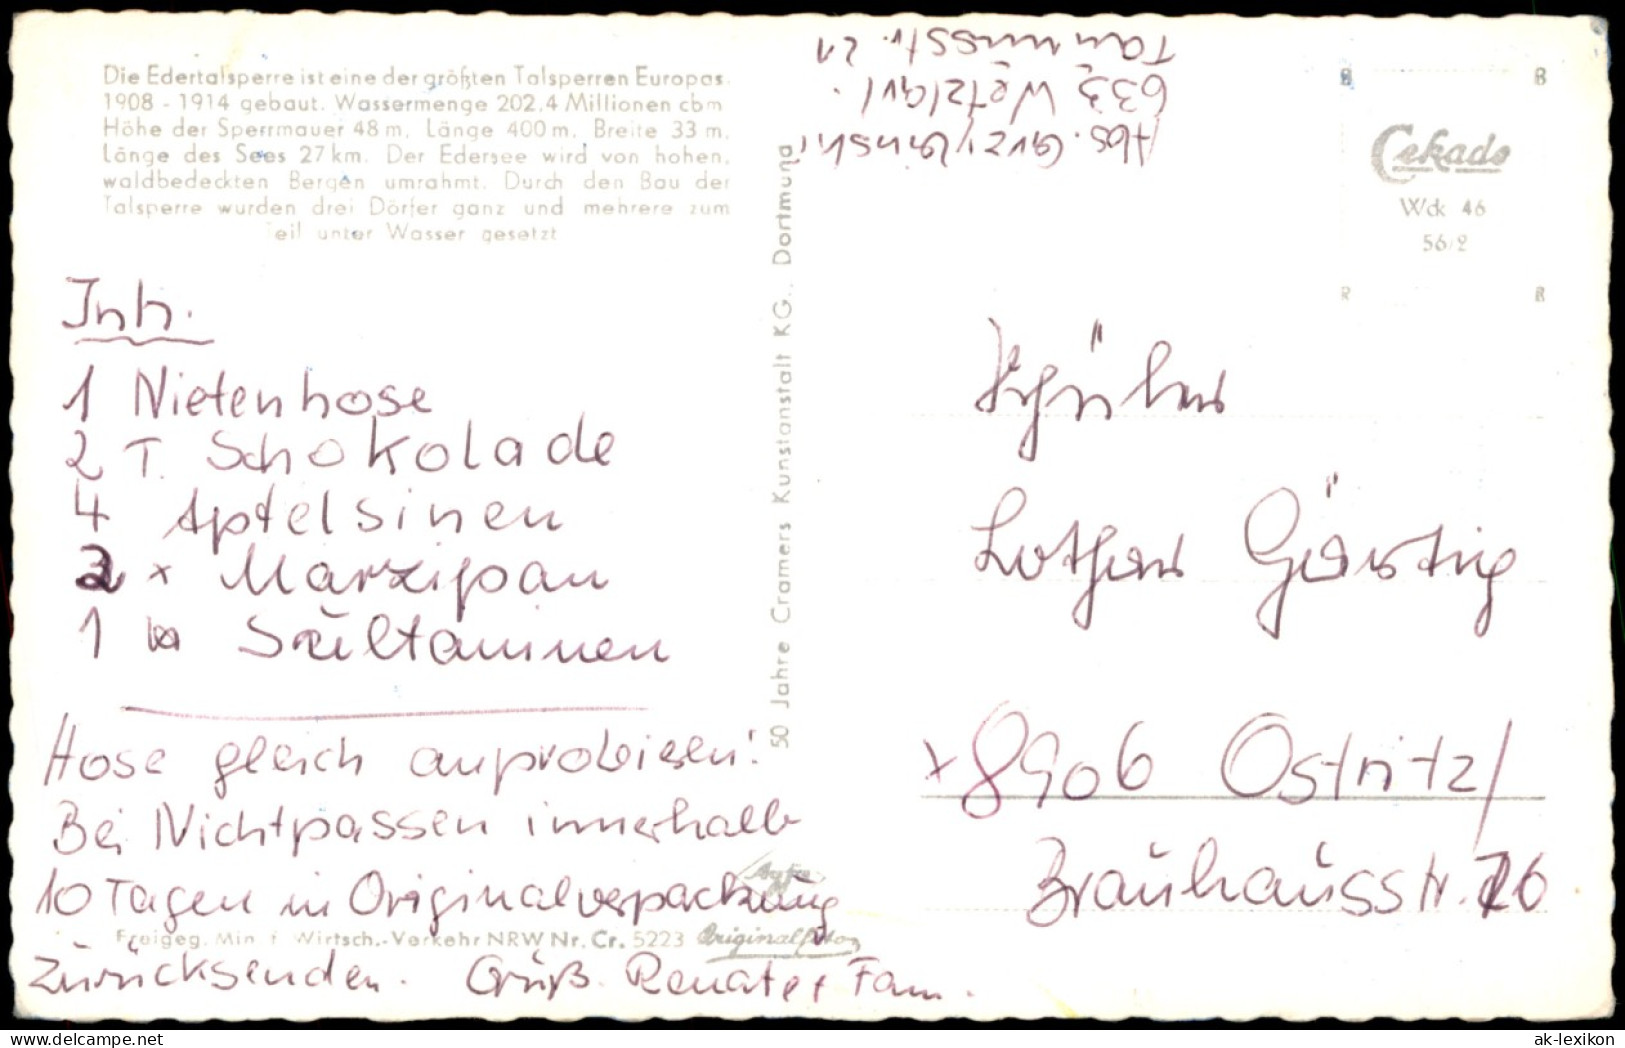 Die Edertalsperre ist eine der größten Talsperren Europas.
1908 - 1914 gebaut. Wassermenge 202,4 Millionen cbm
Höhe der Sperrmauer 48 m, Länge 400 m. Breite 33 m.
Länge des Sees 27 km. Der Edersee wird von hohen,
waldbedeckten Bergen umrahmt. Durch den Bau der
Talsperre wurden drei Dörfer ganz und mehrere zum
Teil unter Wasser gesetzt
Inh.
1 Nietenhose
2 T. Schokolade
4 Apfelsinen
2 x Marzipan
1 Sultaninen
Hose gleich anprobieren!
Bei Nichtpassen innerhalb
10 Tagen in Originalverpackung
zurücksenden. Gruß. Renate + Fam.
Freigeg. Min. f. Wirtsch.-Verkehr NRW Nr. Cr. 5223
Agfa
Originalfoto
50 Jahre Cramers Kunstanstalt KG., Dortmund
Abs. Grzybinski
633 Wetzlar/
Taunusstr. 21
Cekade
Wdk 46
56/2
Schüler
Lothar Görtig
x 8906 Ostritz/
Brauhausstr. 26
ak-lexikon